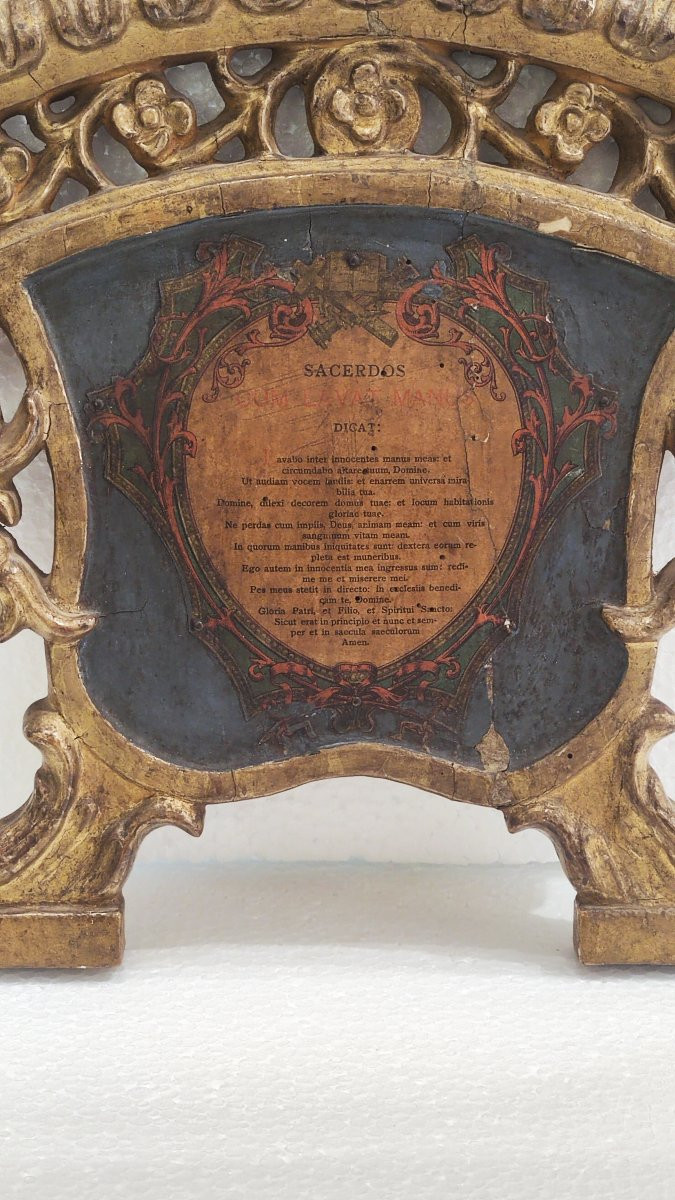 SACERDOS
CUM LAVAT MANUS
DICAT:
avabo inter innocentes manus meas: et
circumdabo altare tuum, Domine.
Ut audiam vocem laudis: et enarrem universa mira
bilia tua.
Domine, dilexi decorem domus tuae: et locum habitationis
gloriae tuae.
Ne perdas cum impiis, Deus, animam meam: et cum viris
sanguinum vitam meam.
In quorum manibus iniquitates sunt: dextera eorum re-
pleta est muneribus.
Ego autem in innocentia mea ingressus sum: redi-
me me et miserere mei.
Pes meus stetit in directo: in ecclesiis benedi-
cam te, Domine.
Gloria Patri, et Filio, et Spiritui Sancto:
Sicut erat in principio et nunc et sem-
per et in saecula saeculorum
Amen.